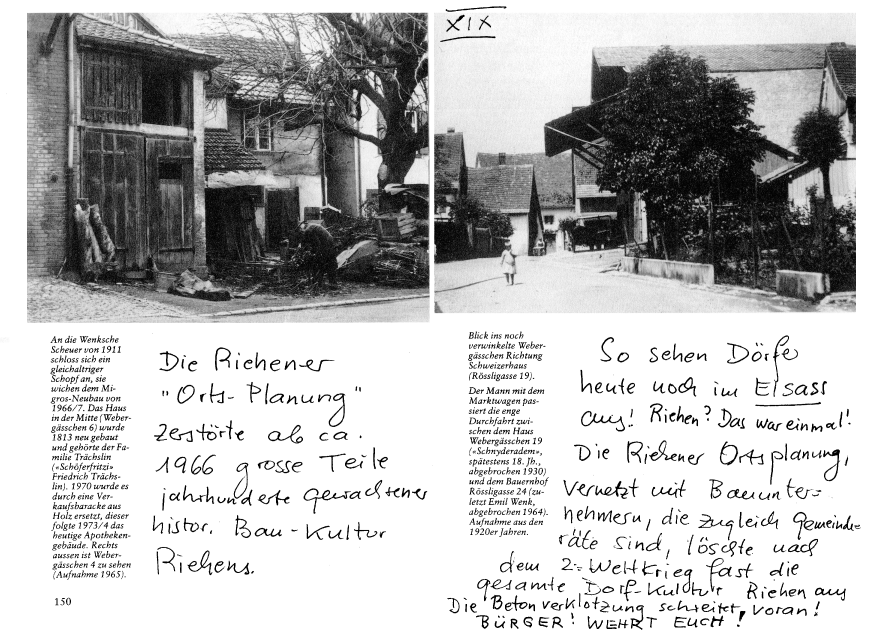 XIX
An die Wenksche
Scheuer von 1911
schloss sich ein
gleichaltriger
Schopf an, sie
wichen dem Mi-
gros-Neubau von
1966/7. Das Haus
in der Mitte (Weber-
gässchen 6) wurde
1813 neu gebaut
und gehörte der Fa-
milie Trächslin
(«Schöferfritzi»
Friedrich Trächs-
lin). 1970 wurde es
durch eine Ver-
kaufsbaracke aus
Holz ersetzt, dieser
folgte 1973/4 das
heutige Apotheken-
gebäude. Rechts
aussen ist Weber-
gässchen 4 zu sehen
(Aufnahme 1965).
150
Die Riehener
"Orts-Planung"
zerstörte ab ca.
1966 grosse Teile
jahrhunderte gewachsener
histor. Bau-Kultur
Riehens.
Blick ins noch
verwinkelte Weber-
gässchen Richtung
Schweizerhaus
(Rössligasse 19).
Der Mann mit dem
Marktwagen pas-
siert die enge
Durchfahrt zwi-
schen dem Haus
Webergässchen 19
(«Schnyderadem»,
spätestens 18. Jh.,
abgebrochen 1930)
und dem Bauernhof
Rössligasse 24 (zu-
letzt Emil Wenk,
abgebrochen 1964).
Aufnahme aus den
1920er Jahren.
So sehen Dörfer
heute noch im Elsass
aus! Riehen? Das war einmal!
Die Riehener Ortsplanung,
vernetzt mit Bauunter=
nehmern, die zugleich Gemeinde=
räte sind, löschte nach
dem 2. Weltkrieg fast die
gesamte Dorf-Kultur Riehen aus
Die Betonverklotzung schreitet voran!
BÜRGER! WEHRT EUCH!